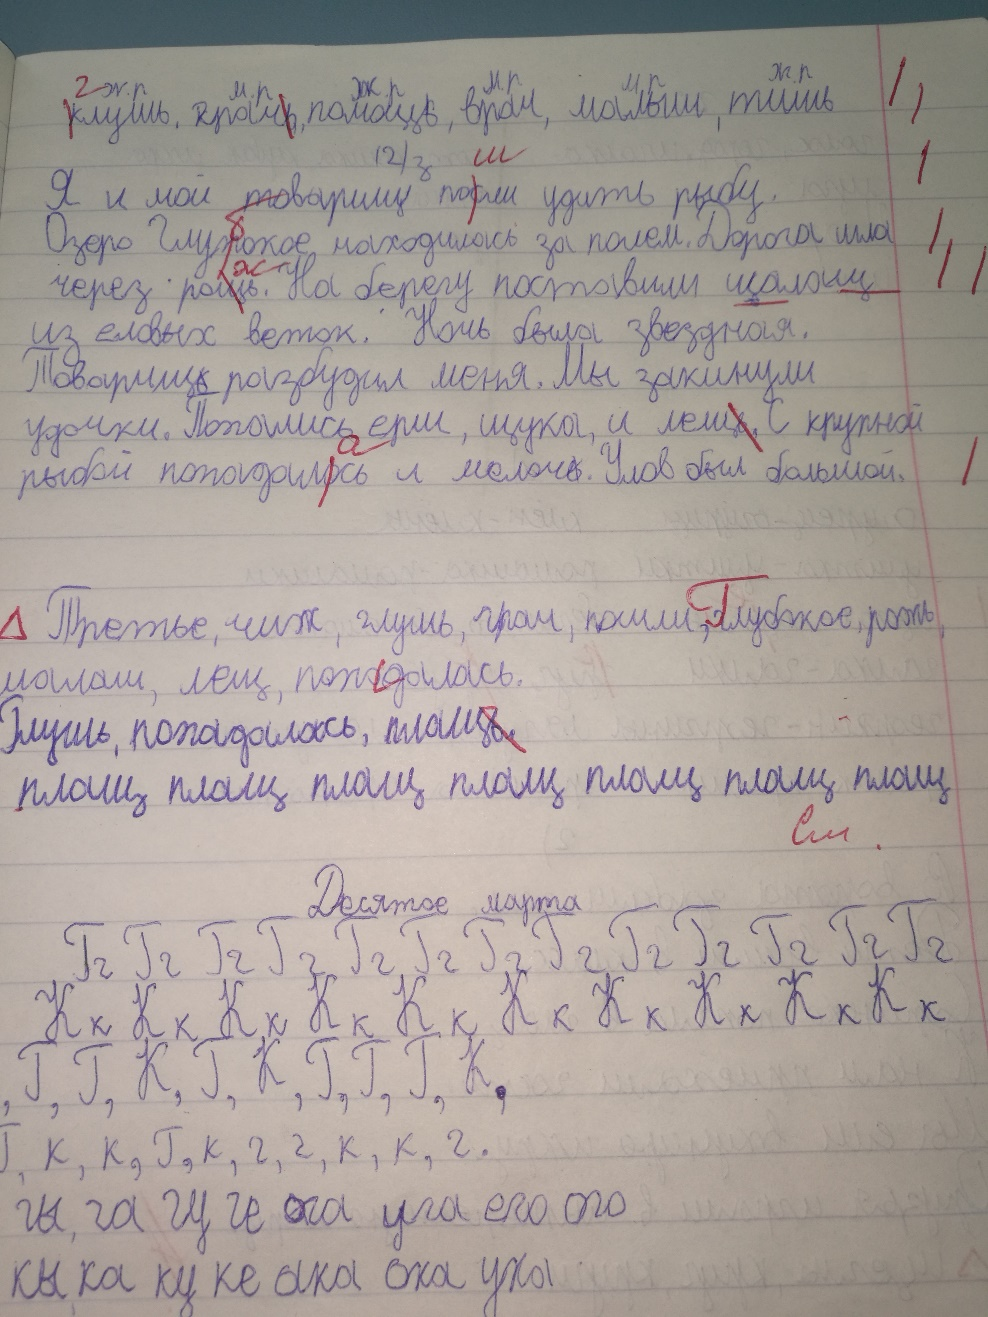 ж.р м.р ж.р м.р м.р ж.р
клушь, грачь, помощь, врач, малыш, тишь
Я и мой товарищ пошли удить рыбу.
Озеро Глубокое находилось за полем. Дорога шла
через рощь. На берегу поставили щалащ
из еловых веток. Ночь была звездная.
Товарищь разбудил меня. Мы закинули
удочки. Попались ерши, щука, и лещь. С крупной
рыбой попадалась и мелочь. Улов был большой.
Третье, чиж, глушь, грач, пошли, Глубокое, рожь,
шалаш, лещ, попадалась.
Глушь, попадалась, плащь.
плащ плащ плащ плащ плащ плащ плащ
См.
Десятое марта
Гг Гг Гг Гг Гг Гг Гг Гг Гг Гг Гг Гг Гг
Кк Кк Кк Кк Кк Кк Кк Кк Кк Кк
, Г, Г, К, Г, К, Г, Г, Г, К,
Г, к, к, Г, к, г, г, к, к, г.
гы, га гу ге ога уга его ого
кы, ка ку ке ака оха уха